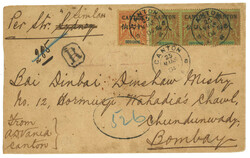 Per Str.
R
CANTON CANTON CANTON
CANTON
Bai Dinbai Dinshaw Mistry
No. 12, Hormusji Wahadia's Chawl,
Chandunwady.
Bombay
526
From
Canton